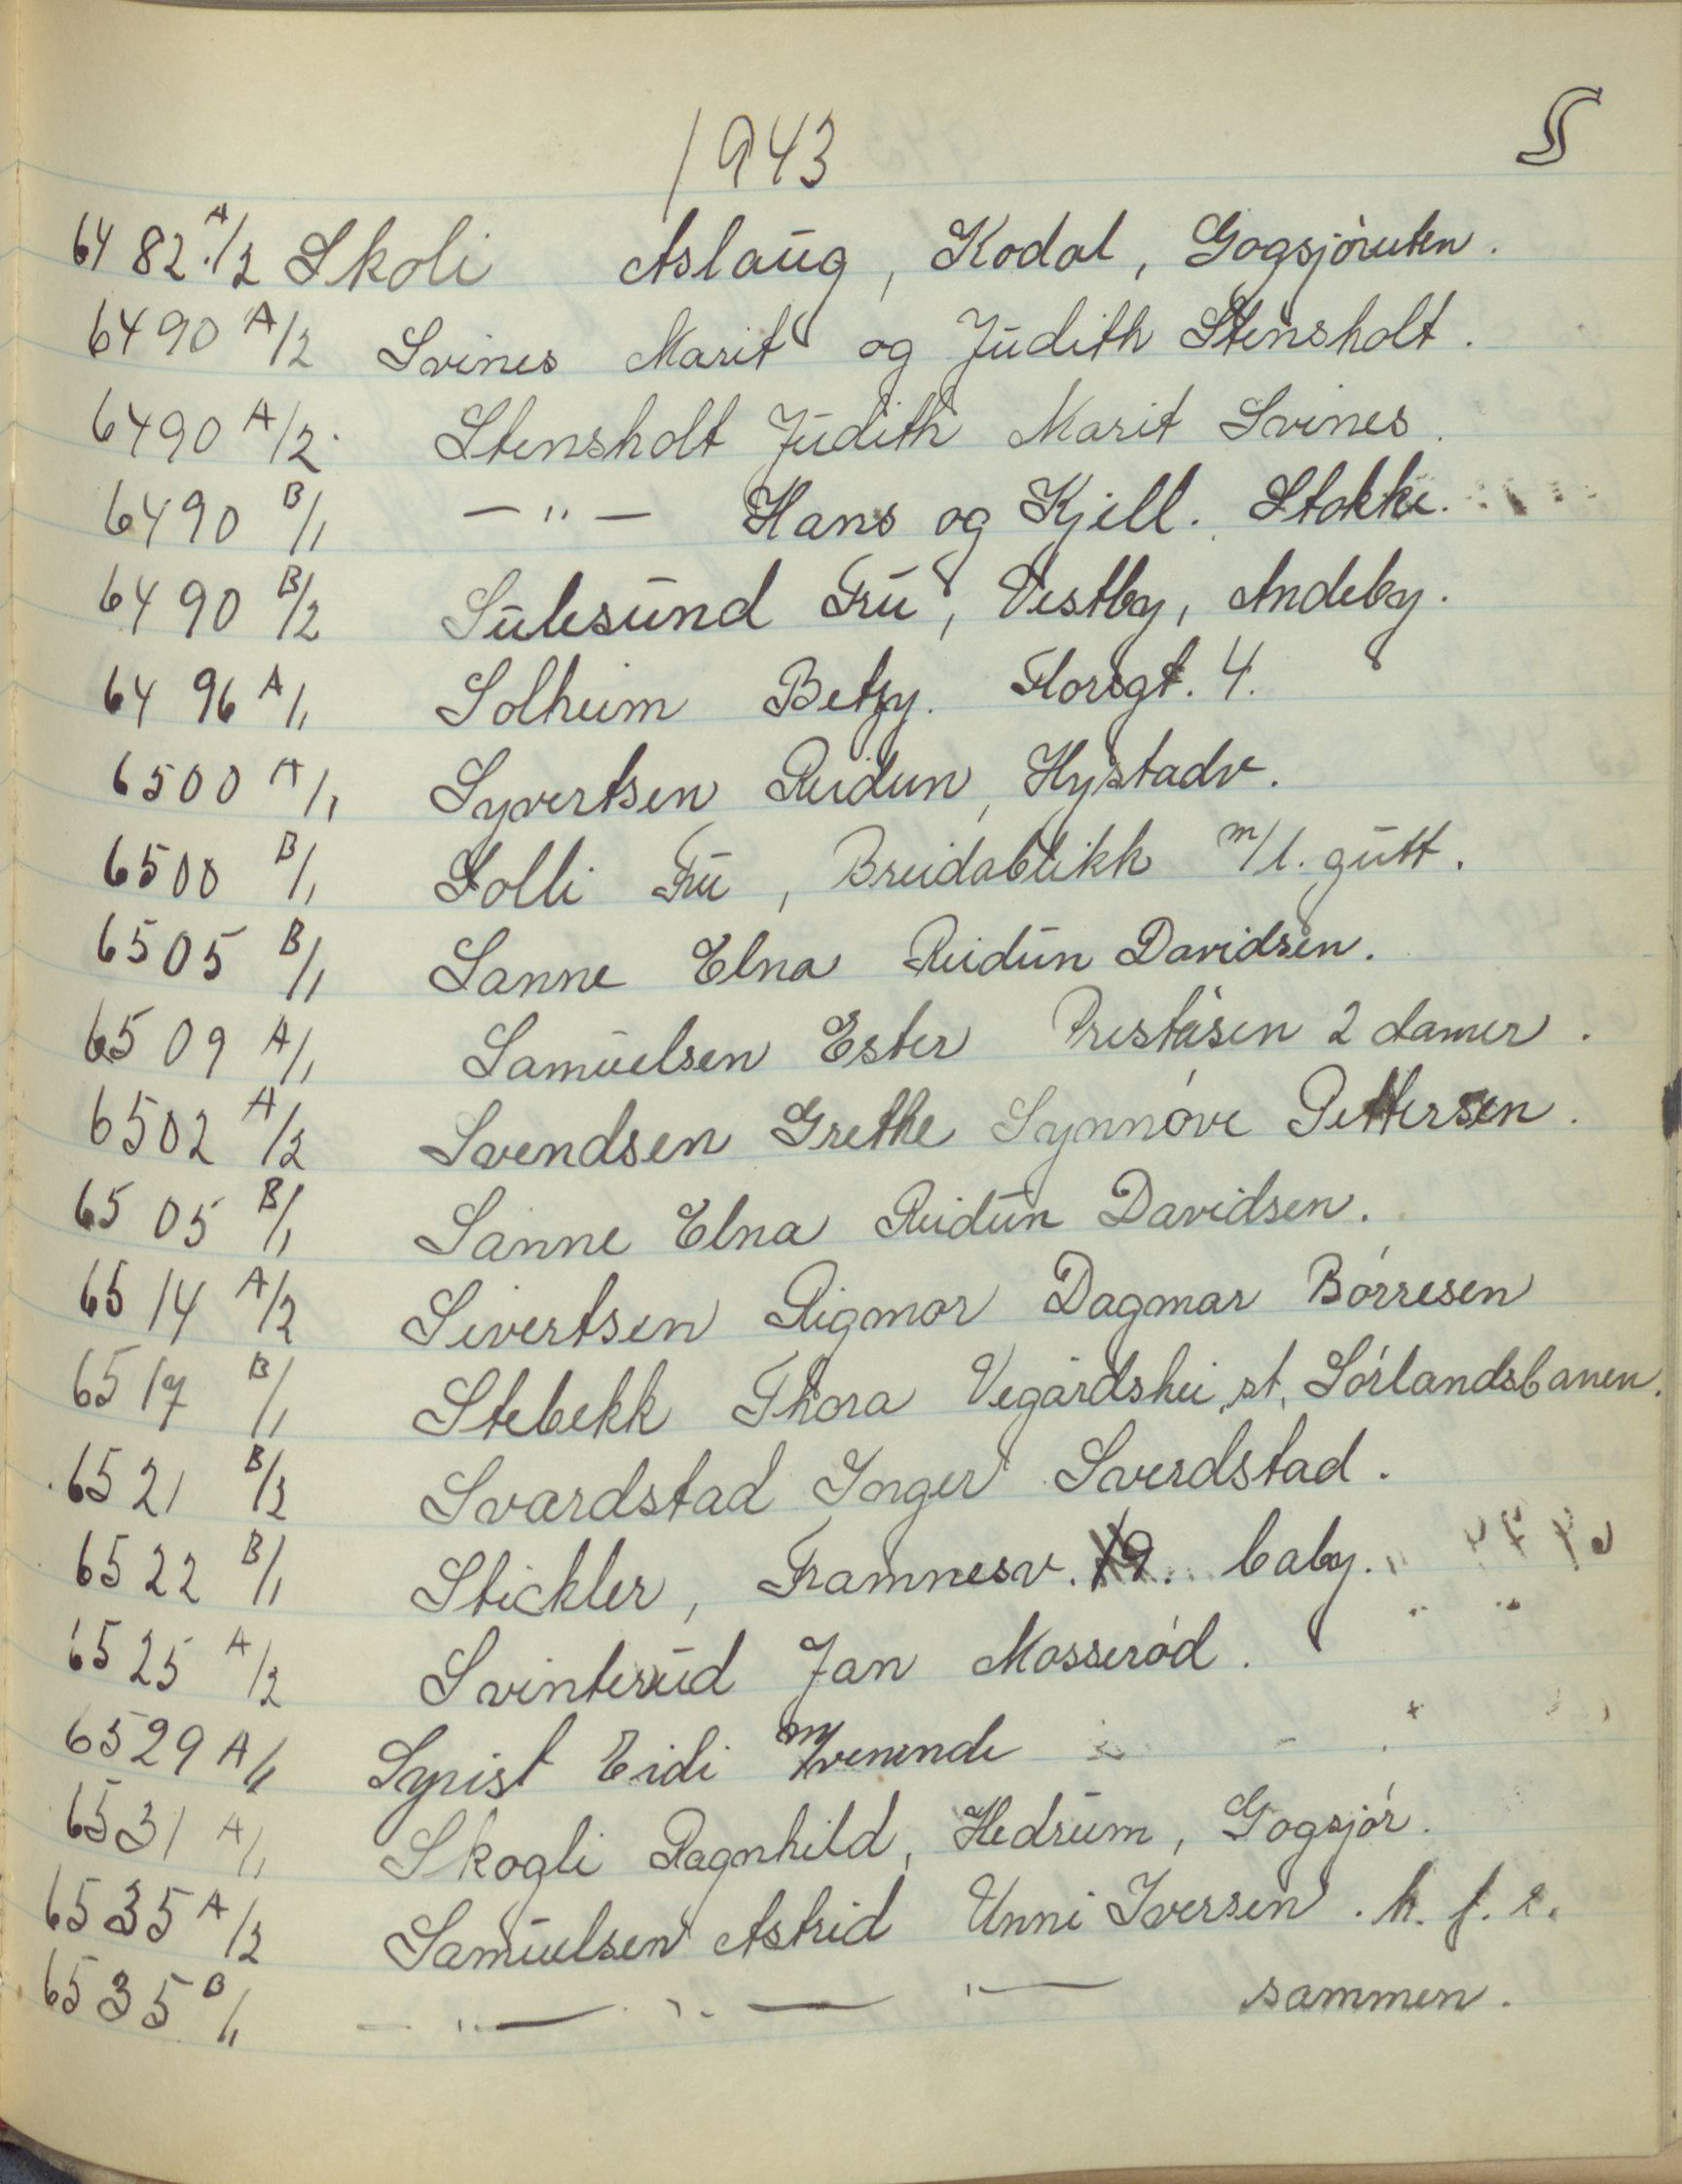 S
1943
6482 A/2 Skoli Aslaug, Kodal, Gogsjøruten.
6490 A/2 Svines Marit og Judith Stensholt.
6490 A/2. Stensholt Judith Marit Svines.
6490 B/1 — " — Hans og Kjell. Stokke.
6490 B/2 Sulesund Fru, Vestby, Andeby.
6496 A/1 Solheim Betzy. Florsgt. 4.
6500 A/1 Syvertsen Reidun, Hystadv.
6500 B/1 Solli Fru, Breidablikk m/l. gutt.
6505 B/1 Sanne Elna Reidun Davidsen.
6509 A/1 Samuelsen Ester Preståsen 2 damer.
6502 A/2 Svendsen Grethe Synnøve Pettersen.
6505 B/1 Sanne Elna Reidun Davidsen.
6514 A/2 Sivertsen Rigmor Dagmar Børresen
6517 B/1 Stebekk Thora Vegårdshei st. Sørlandsbanen.
6521 B/2 Svardstad Inger Sverdstad.
6522 B/1 Stickler, Framnesv. 19. baby.
6525 A/2 Svinterud Jan Mosserød.
6529 A/1 Synist Eidi m/veninde
6531 A/1 Skogli Ragnhild, Hedrum, Gogsjør.
6535 A/2 Samuelsen Astrid Unni Iversen. h. f. e.
6535 B/1 — " — " — " — sammen.